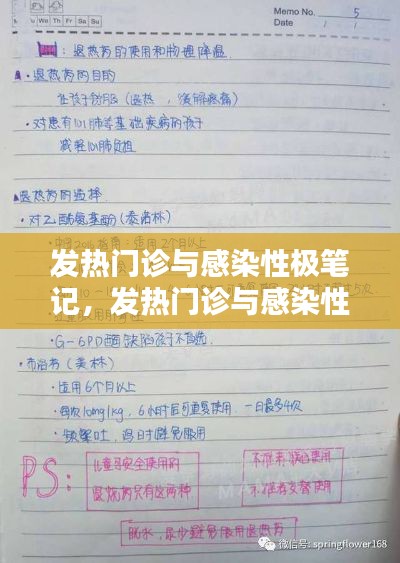 Memo No. 5
Date / /
Mo Tu We Th Fr Sa Su
：退热药的使用和物理降温.
退热药的目的
让孩子舒服（退热，缓解疼痛）
对患有心肺等基础疾病的孩子
减轻心肺负担
退热药的选择
对乙酰氨基酚（泰诺林）
发热门诊与感染性极笔
记，发热门诊与感染性
G-6PD酶缺陷孩子不首选.
布洛芬（美林）
适用6个月以上
每次10mg/kg，6小时后可重复使用.一日最多4次
频繁吐，
避免服用
PS:
儿童可安全使用的
退烧药只有这两种
不推荐联合使用
不推荐交替使用
脱水，尿少避免服用退热药
微信号: springflower168